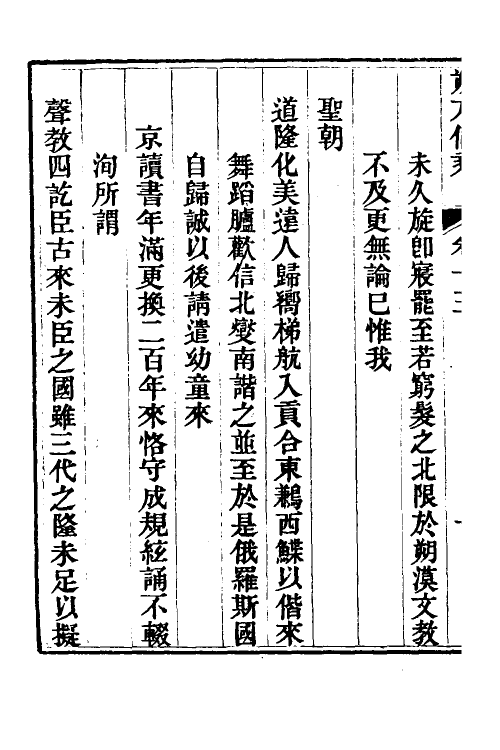 朔方備乘 卷十三 一
未久旋卽寢罷至若窮髮之北限於朔漠文教
不及更無論已惟我
聖朝
道隆化美遠人歸嚮梯航入貢合東鶼西鰈以偕來
舞蹈臚歡信北燮南諧之並至於是俄羅斯國
自歸誠以後請遣幼童來
京讀書年滿更換二百年來恪守成規絃誦不輟
洵所謂
聲教四訖臣古來未臣之國雖三代之隆未足以擬